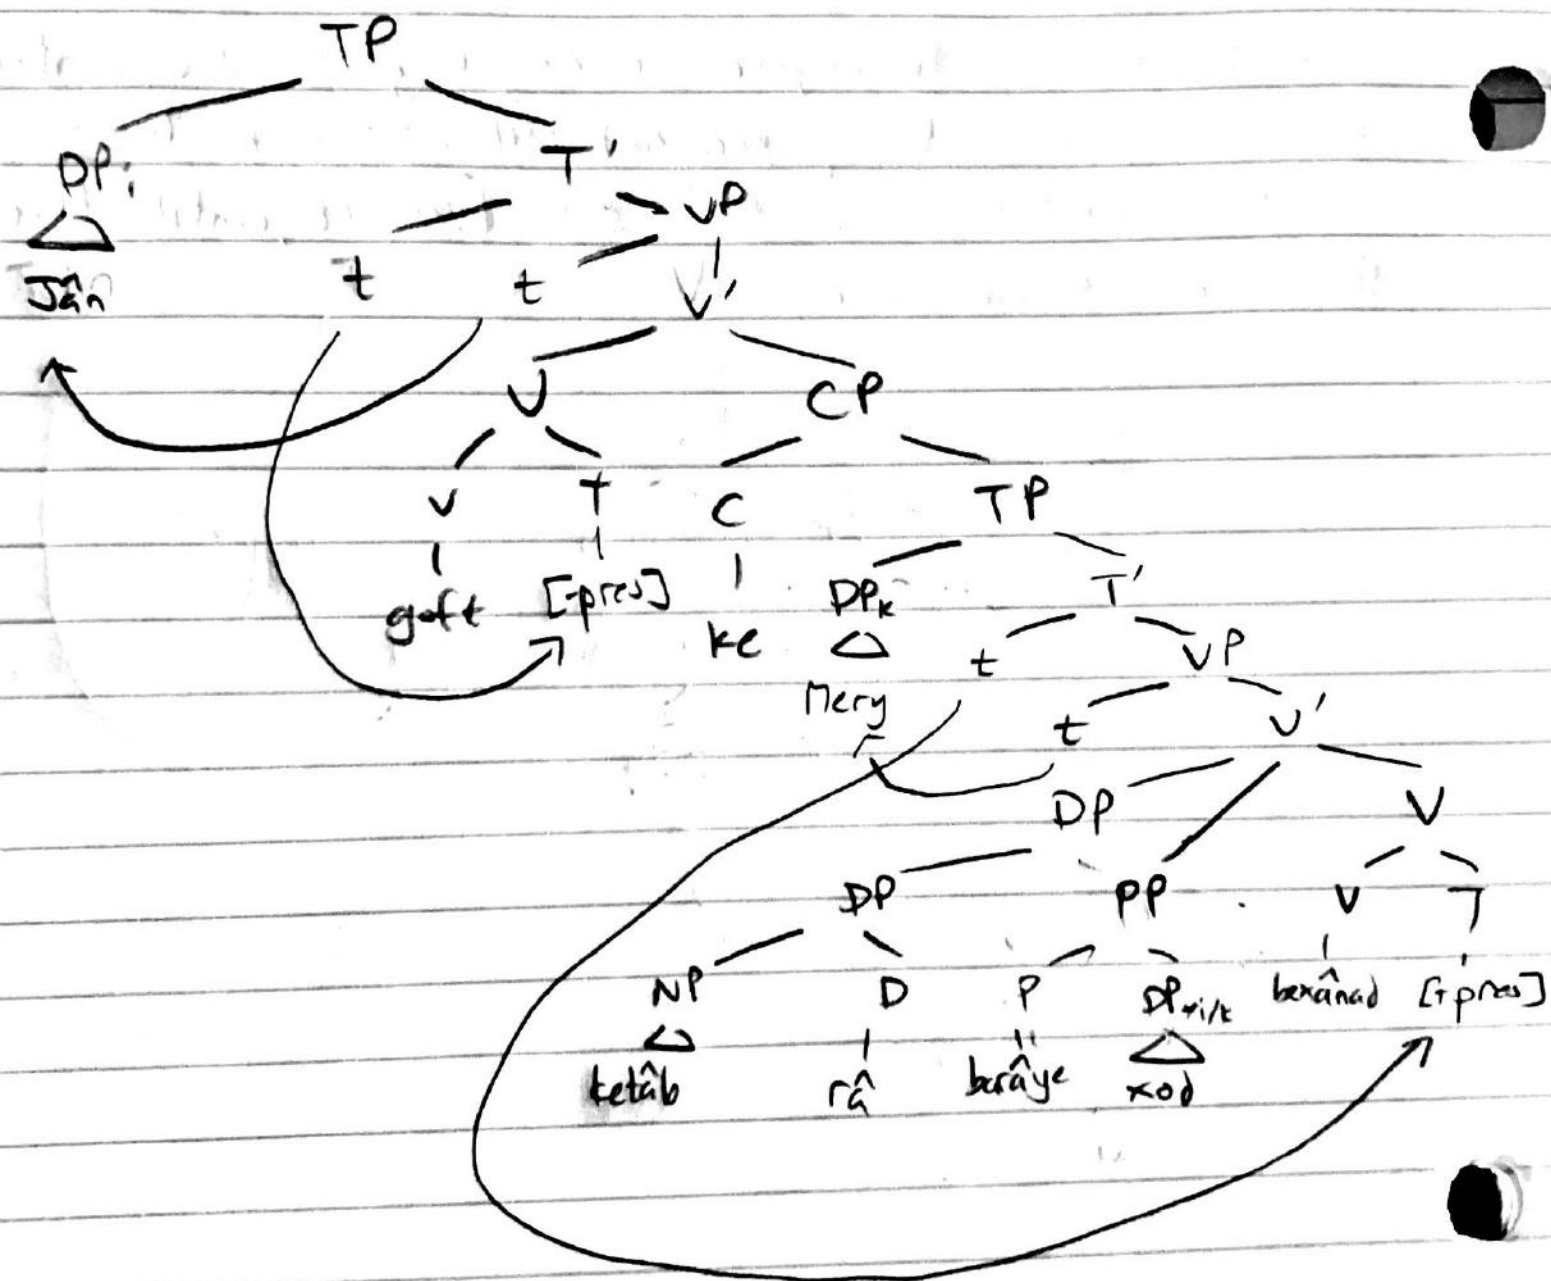 TP
DPᵢ T'
Jân t t vP
v'
V CP
v T C TP
goft [-pres] ke DPₖ T'
Mery t vP
t v'
DP V
DP PP v T
NP D P DP*i/k bexânad [+pres]
ketâb râ barâye xod